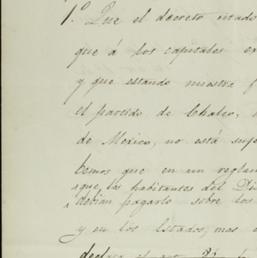 1.º Que el decreto citado
que á los capitales ex
y que estando nuestra f
el partido de Chalco,
de Mexico, no está suje
bemos que en un reglam
que los habitantes del Di
debian pagarlo sobre los
y en los Estados, mas
declara el art. 21